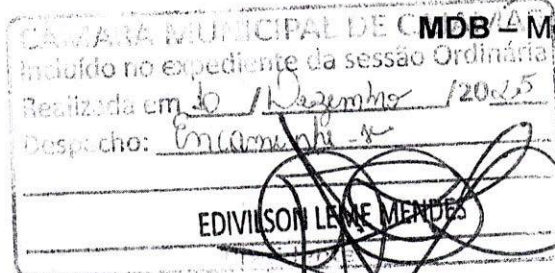 CÂMARA MUNICIPAL DE
MDB – M
Incluído no expediente da sessão Ordinária
Realizada em 10 / Dezembro /2025
Despacho: Encaminhe-se
EDIVILSON LEME MENDES